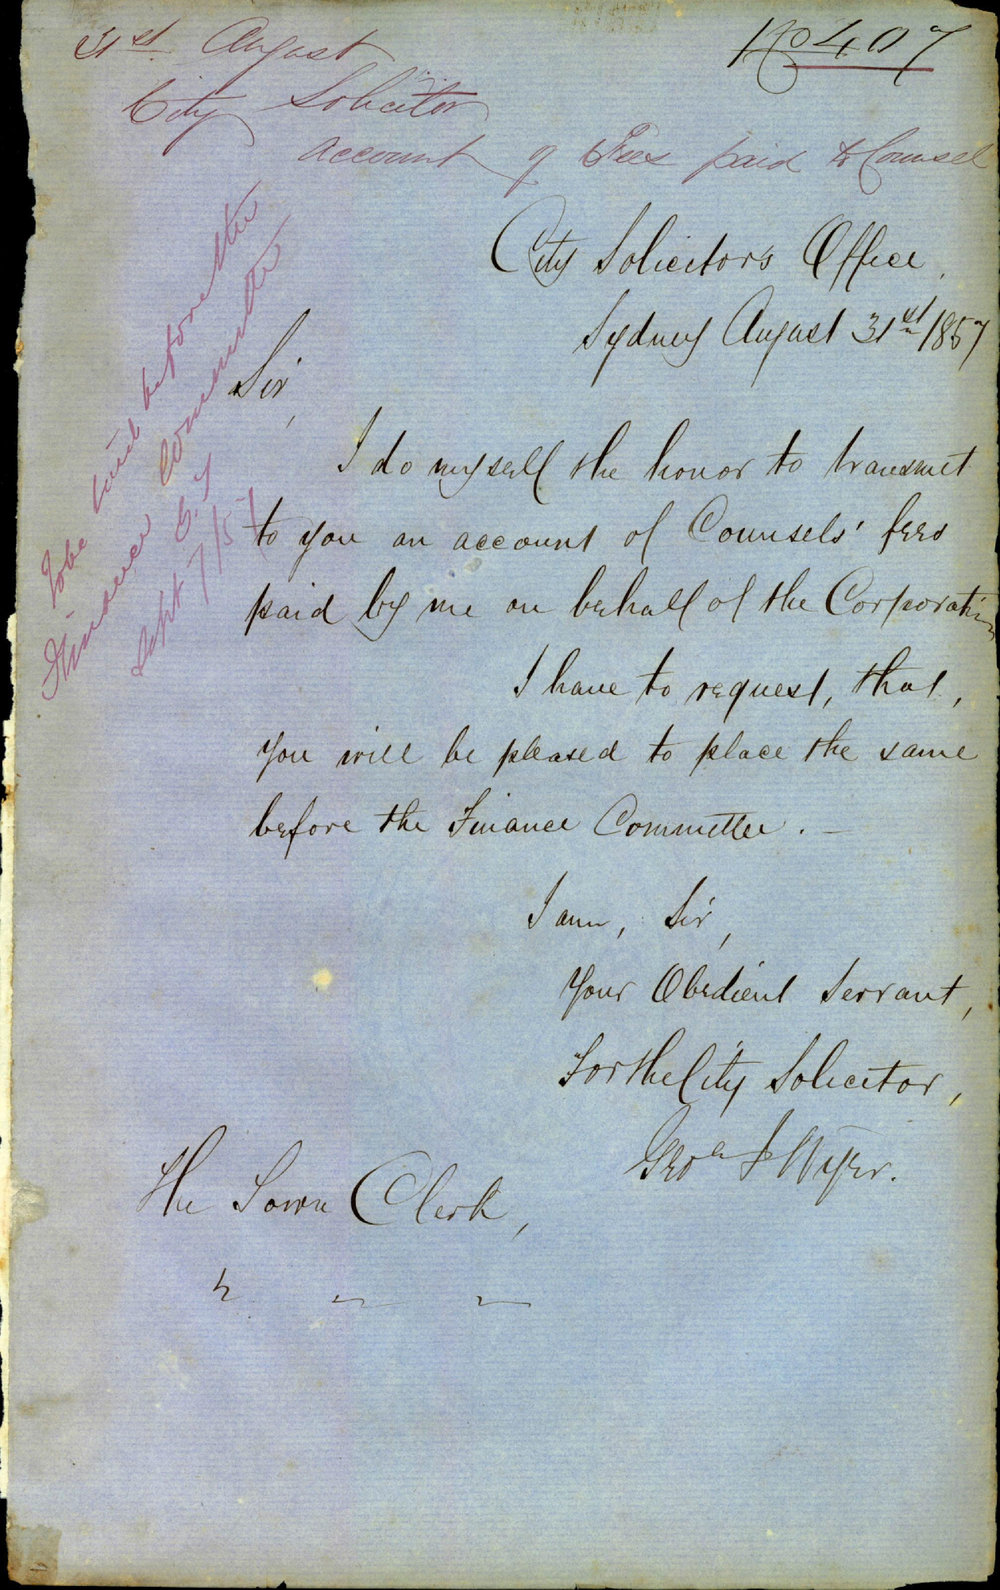 31st August
No 407
City Solicitor
Account of Fees paid to Counsel
City Solicitors Office,
Sydney August 31st 1857
To be laid before the
Finance Committee
Sept 7/57
Sir,
I do myself the honor to transmit
to you an account of Counsels' fees
paid by me on behalf of the Corporation
I have to request, that,
you will be pleased to place the same
before the Finance Committee. –
I am, Sir,
Your Obedient Servant,
For the City Solicitor,
Geo J Wyer.
The Town Clerk,